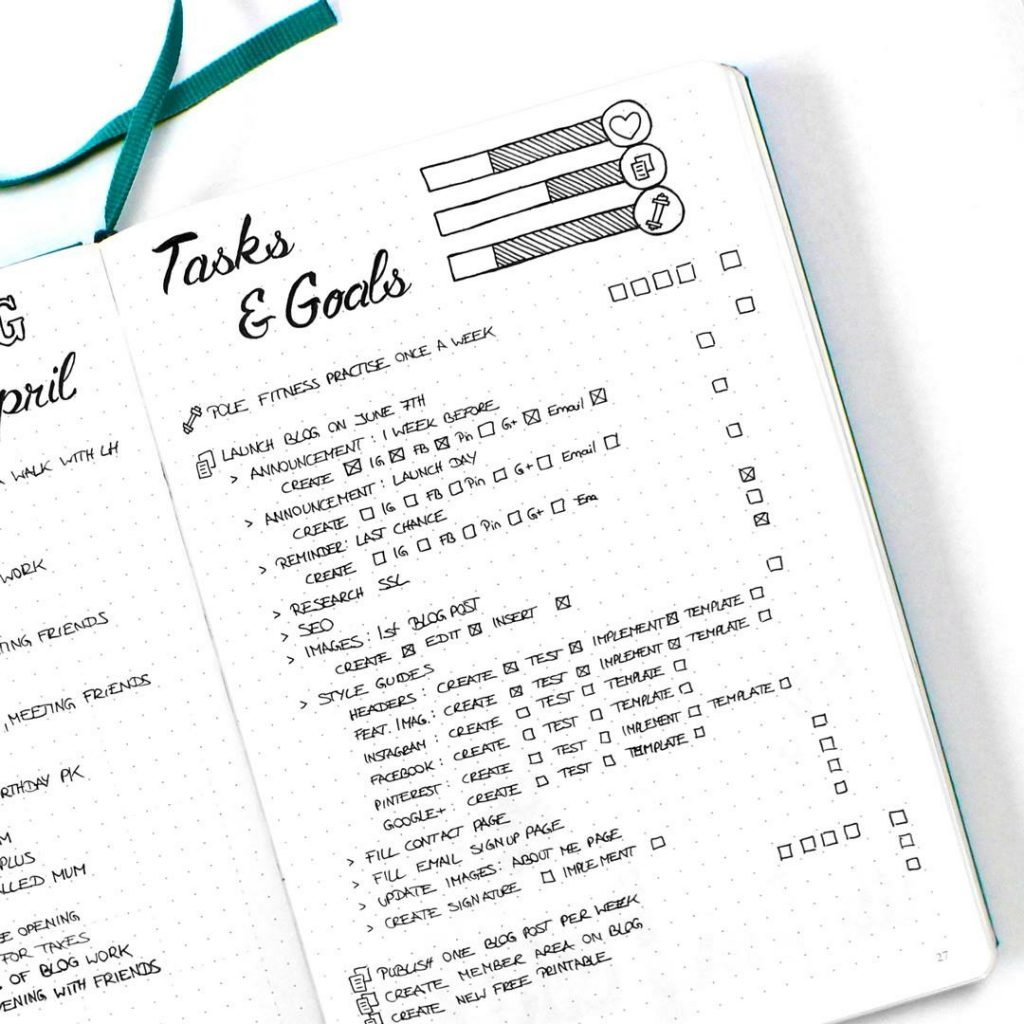 G
pril
WALK WITH LH
WORK
TING FRIENDS
, MEETING FRIENDS
RTHDAY PK
M
PLUS
LLED MUM
E OPENING
FOR TAKES
. OF BLOG WORK
ENING WITH FRIENDS
Tasks
& Goals
POLE FITNESS PRACTISE ONCE A WEEK
LAUNCH BLOG ON JUNE 7TH
> ANNOUNCEMENT: 1 WEEK BEFORE
CREATE ☒ IG ☒ FB ☒ Pin ☐ G+ ☒ Email ☒
> ANNOUNCEMENT: LAUNCH DAY
CREATE ☐ IG ☐ FB ☐ Pin ☐ G+ ☐ Email ☐
> REMINDER: LAST CHANCE
CREATE ☐ IG ☐ FB ☐ Pin ☐ G+ ☐ Ema
> RESEARCH SSL
> SEO
> IMAGES: 1st BLOGPOST
CREATE ☒ EDIT ☒ INSERT ☒
> STYLE GUIDES
HEADERS: CREATE ☒ TEST ☒ IMPLEMENT ☒ TEMPLATE ☐
FEAT. IMAG.: CREATE ☒ TEST ☒ IMPLEMENT ☒ TEMPLATE ☐
INSTAGRAM: CREATE ☐ TEST ☐ TEMPLATE ☐
FACEBOOK: CREATE ☐ TEST ☐ TEMPLATE ☐
PINTEREST: CREATE ☐ TEST ☐ IMPLEMENT ☐ TEMPLATE ☐
GOOGLE+: CREATE ☐ TEST ☐ TEMPLATE ☐
> FILL CONTACT PAGE
> FILL EMAIL SIGNUP PAGE
> UPDATE IMAGES: ABOUT ME PAGE
> CREATE SIGNATURE ☐ IMPLEMENT ☐
PUBLISH ONE BLOG POST PER WEEK
CREATE MEMBER AREA ON BLOG
CREATE NEW FREE PRINTABLE
27